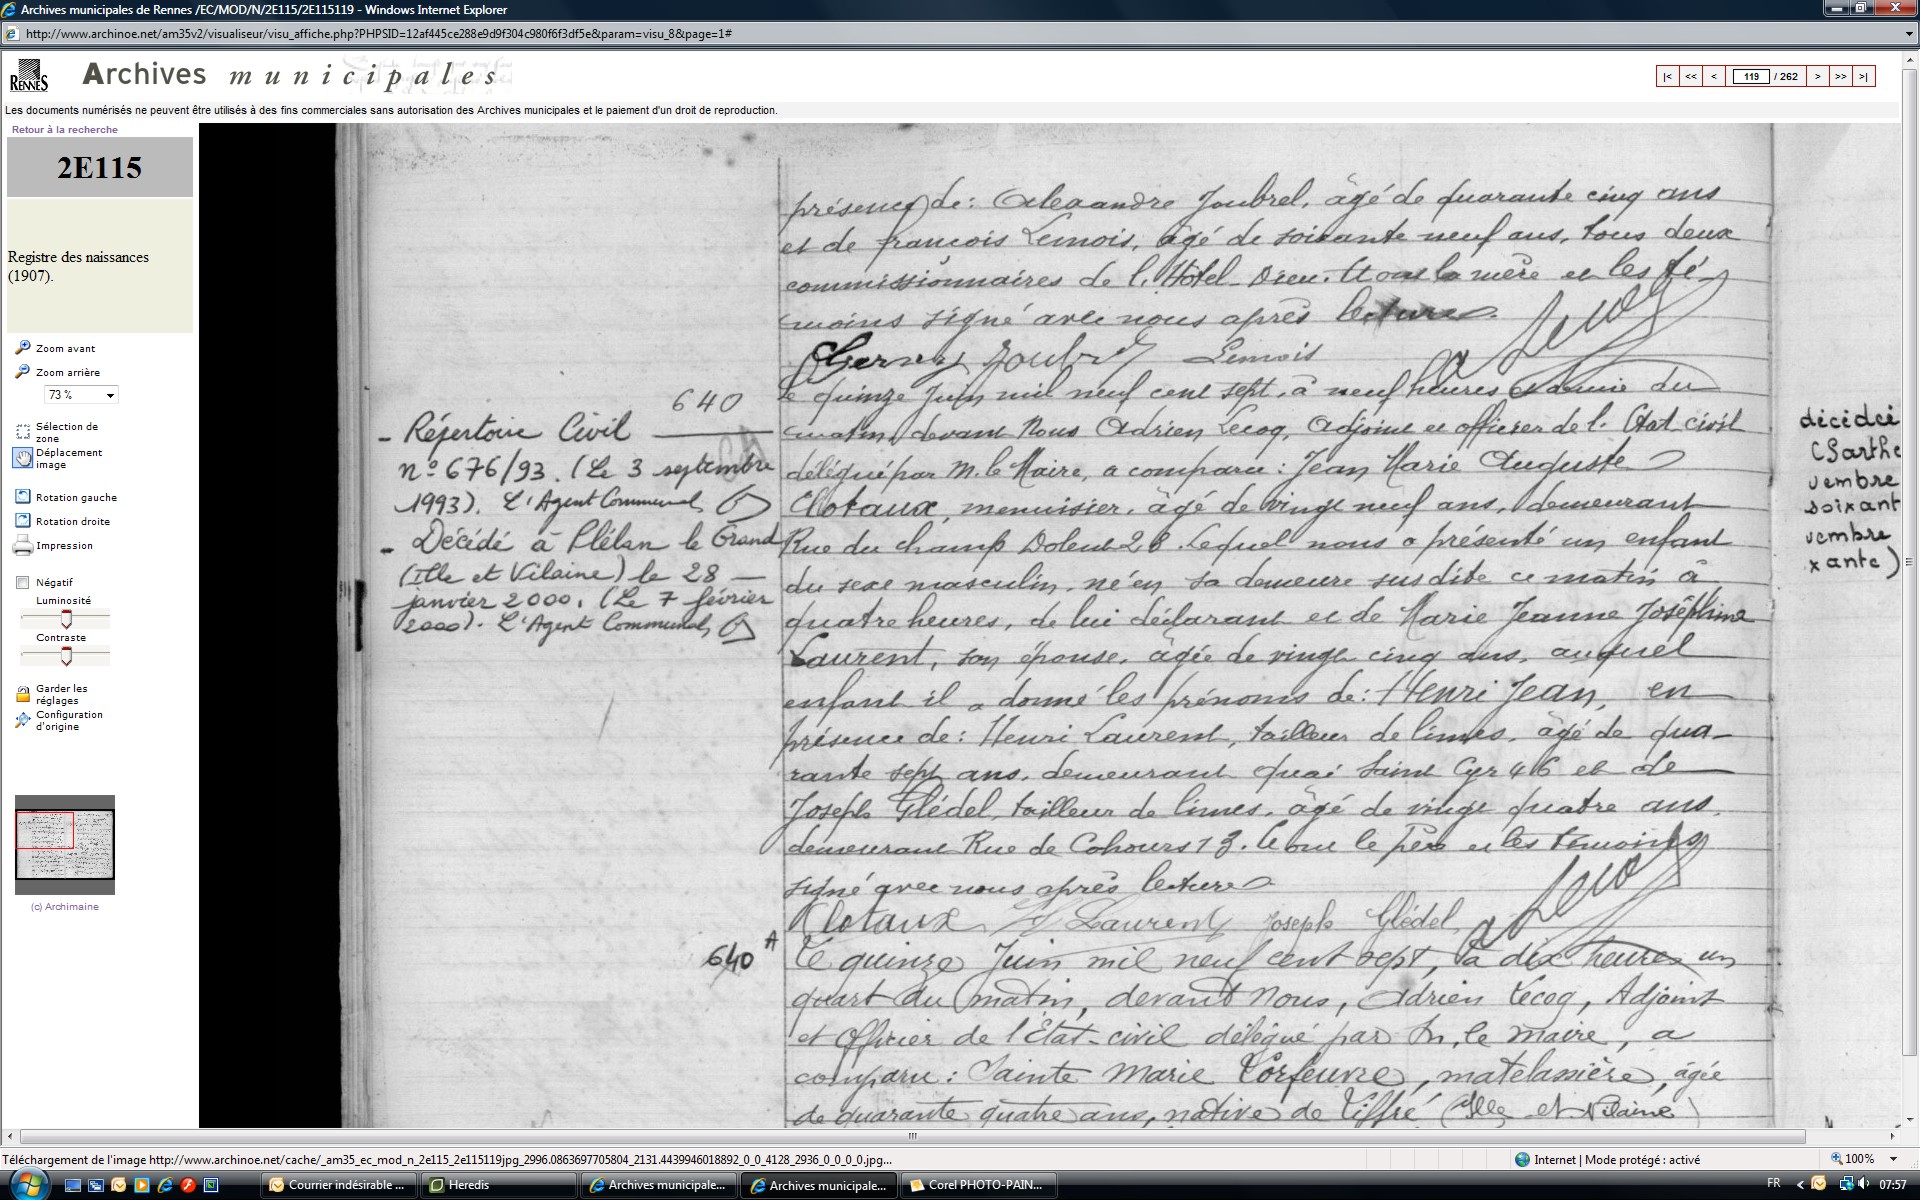 Archives municipales de Rennes /EC/MOD/N/2E115/2E115119 - Windows Internet Explorer
http://www.archinoe.net/am35v2/visualiseur/visu_affiche.php?PHPSID=12af445ce288e9d9f304c980f6f3df5e&param=visu_8&page=1#
RENNES
Archives municipales
|< << < 119 / 262 > >> >|
Les documents numérisés ne peuvent être utilisés à des fins commerciales sans autorisation des Archives municipales et le paiement d'un droit de reproduction.
Retour à la recherche
2E115
Registre des naissances
(1907).
Zoom avant
Zoom arrière
73 %
Sélection de
zone
Déplacement
image
Rotation gauche
Rotation droite
Impression
Négatif
Luminosité
Contraste
Garder les
réglages
Configuration
d'origine
(c) Archimaine
présence de : Alexandre Joubrel, âgé de quarante cinq ans
et de françois Lemois, âgé de soixante neuf ans, tous deux
commissionnaires de l'Hôtel-Dieu. Et ont la mère et les té
moins signé avec nous après lecture.
Joubrel Lemois
640
Le quinze Juin mil neuf cent sept, à neuf heures et demie du
matin, devant Nous Adrien Lecoq, Adjoint et officier de l'Etat civil
délégué par M. le Maire, a comparu : Jean Marie Auguste
Clotaux, menuisier, âgé de vingt neuf ans, demeurant
Rue du champ Dolent 28. Lequel nous a présenté un enfant
du sexe masculin, né en sa demeure susdite ce matin à
quatre heures, de lui déclarant et de Marie Jeanne Joséphine
Laurent, son épouse, âgée de vingt cinq ans, auquel
enfant il a donné les prénoms de : Henri Jean, en
présence de : Henri Laurent, tailleur de limes, âgé de qua-
rante sept ans, demeurant quai Saint Cyr 46 et de
Joseph Glédel, tailleur de limes, âgé de vingt quatre ans,
demeurant Rue de Cohours 13. Et ont le Père et les témoins
signé avec nous après lecture
Clotaux H Laurent Joseph Glédel
- Répertoire Civil
n° 676/93. (Le 3 septembre
1993). L'Agent Communal,
- Décédé à Plélan le Grand
(Ille et Vilaine) le 28
janvier 2000. (Le 7 février
2000). L'Agent Communal,
640 A
Le quinze Juin mil neuf cent sept, à dix heures un
quart du matin, devant Nous, Adrien Lecoq, Adjoint
et Officier de l'Etat-civil délégué par M. le maire, a
comparu : Sainte Marie Porfeuvre, matelassière, âgée
de quarante quatre ans, native de Liffré (Ille et Vilaine)
décédée
(Sarthe
vembre
soixant
vembre
xante)
Téléchargement de l'image http://www.archinoe.net/cache/_am35_ec_mod_n_2e115_2e115119jpg_2996.0863697705804_2131.4439946018892_0_0_4128_2936_0_0_0_0.jpg...
Internet | Mode protégé : activé
100%
Courrier indésirable ...
Heredis
Archives municipale...
Archives municipale...
Corel PHOTO-PAIN...
FR
07:57